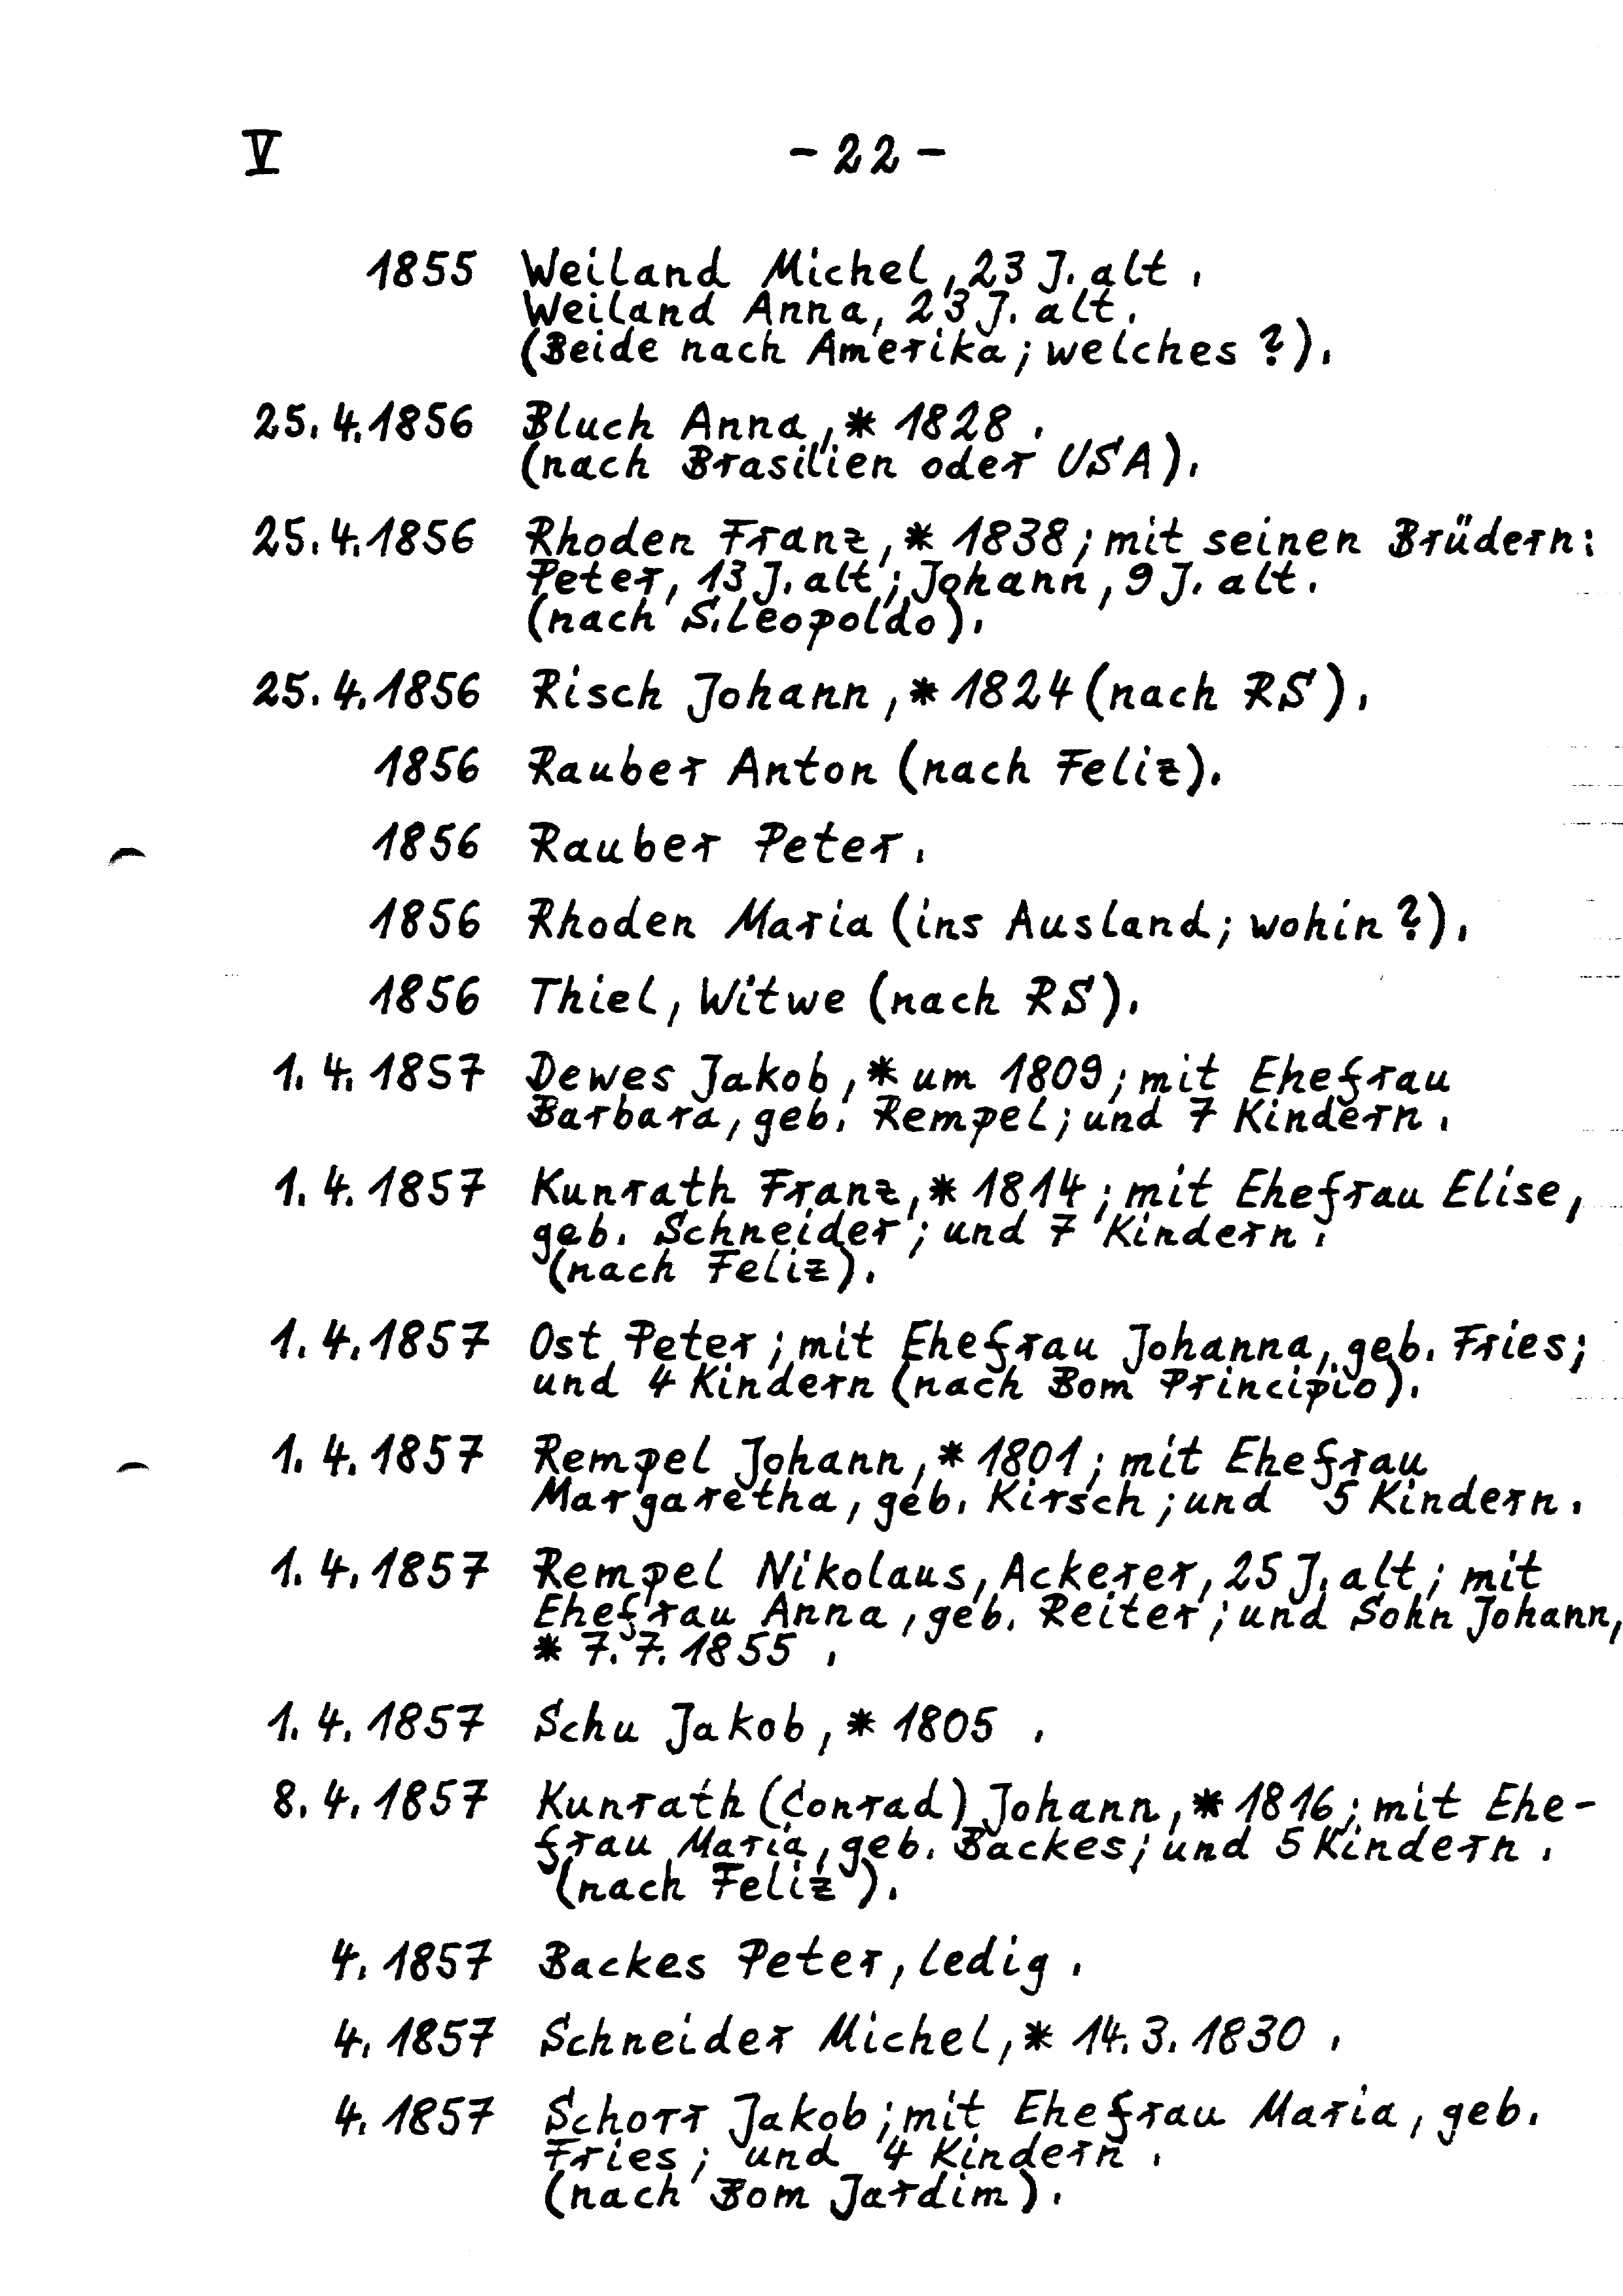 V - 22 -
1855 Weiland Michel, 23 J. alt.
Weiland Anna, 23 J. alt.
(Beide nach Amerika; welches?).
25.4.1856 Bluch Anna, * 1828.
(nach Brasilien oder USA).
25.4.1856 Rhoden Franz, * 1838; mit seinen Brüdern:
Peter, 13 J. alt; Johann, 9 J. alt.
(nach S. Leopoldo).
25.4.1856 Risch Johann, * 1824 (nach RS).
1856 Rauber Anton (nach Feliz).
1856 Rauber Peter.
1856 Rhoden Maria (ins Ausland; wohin?).
1856 Thiel, Witwe (nach RS).
1.4.1857 Dewes Jakob, * um 1809; mit Ehefrau
Barbara, geb. Rempel; und 7 Kindern.
1.4.1857 Kunrath Franz, * 1814; mit Ehefrau Elise,
geb. Schneider; und 7 Kindern.
(nach Feliz).
1.4.1857 Ost Peter; mit Ehefrau Johanna, geb. Fries;
und 4 Kindern (nach Bom Principio).
1.4.1857 Rempel Johann, * 1801; mit Ehefrau
Margaretha, geb. Kirsch; und 5 Kindern.
1.4.1857 Rempel Nikolaus, Ackerer, 25 J. alt; mit
Ehefrau Anna, geb. Reiter; und Sohn Johann,
* 7.7.1855.
1.4.1857 Schu Jakob, * 1805.
8.4.1857 Kunrath (Conrad) Johann, * 1816; mit Ehe-
frau Maria, geb. Backes; und 5 Kindern.
(nach Feliz).
4.1857 Backes Peter, ledig.
4.1857 Schneider Michel, * 14.3.1830.
4.1857 Schorr Jakob; mit Ehefrau Maria, geb.
Fries; und 4 Kindern.
(nach Bom Jardim).